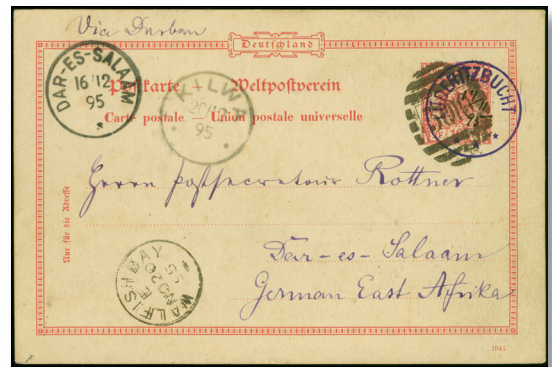 Via Durban
Deutschland
Postkarte — Weltpostverein
Carte postale — Union postale universelle
DAR-ES-SALAAM
16/12
95
*
KILWA
95
* *
LÜDERITZBUCHT
95
*
Nur für die Adresse
Herrn Postsecretair Rottner
Dar-es-Salaam
German East Afrika
WALFISH BAY
E
NO 20
95